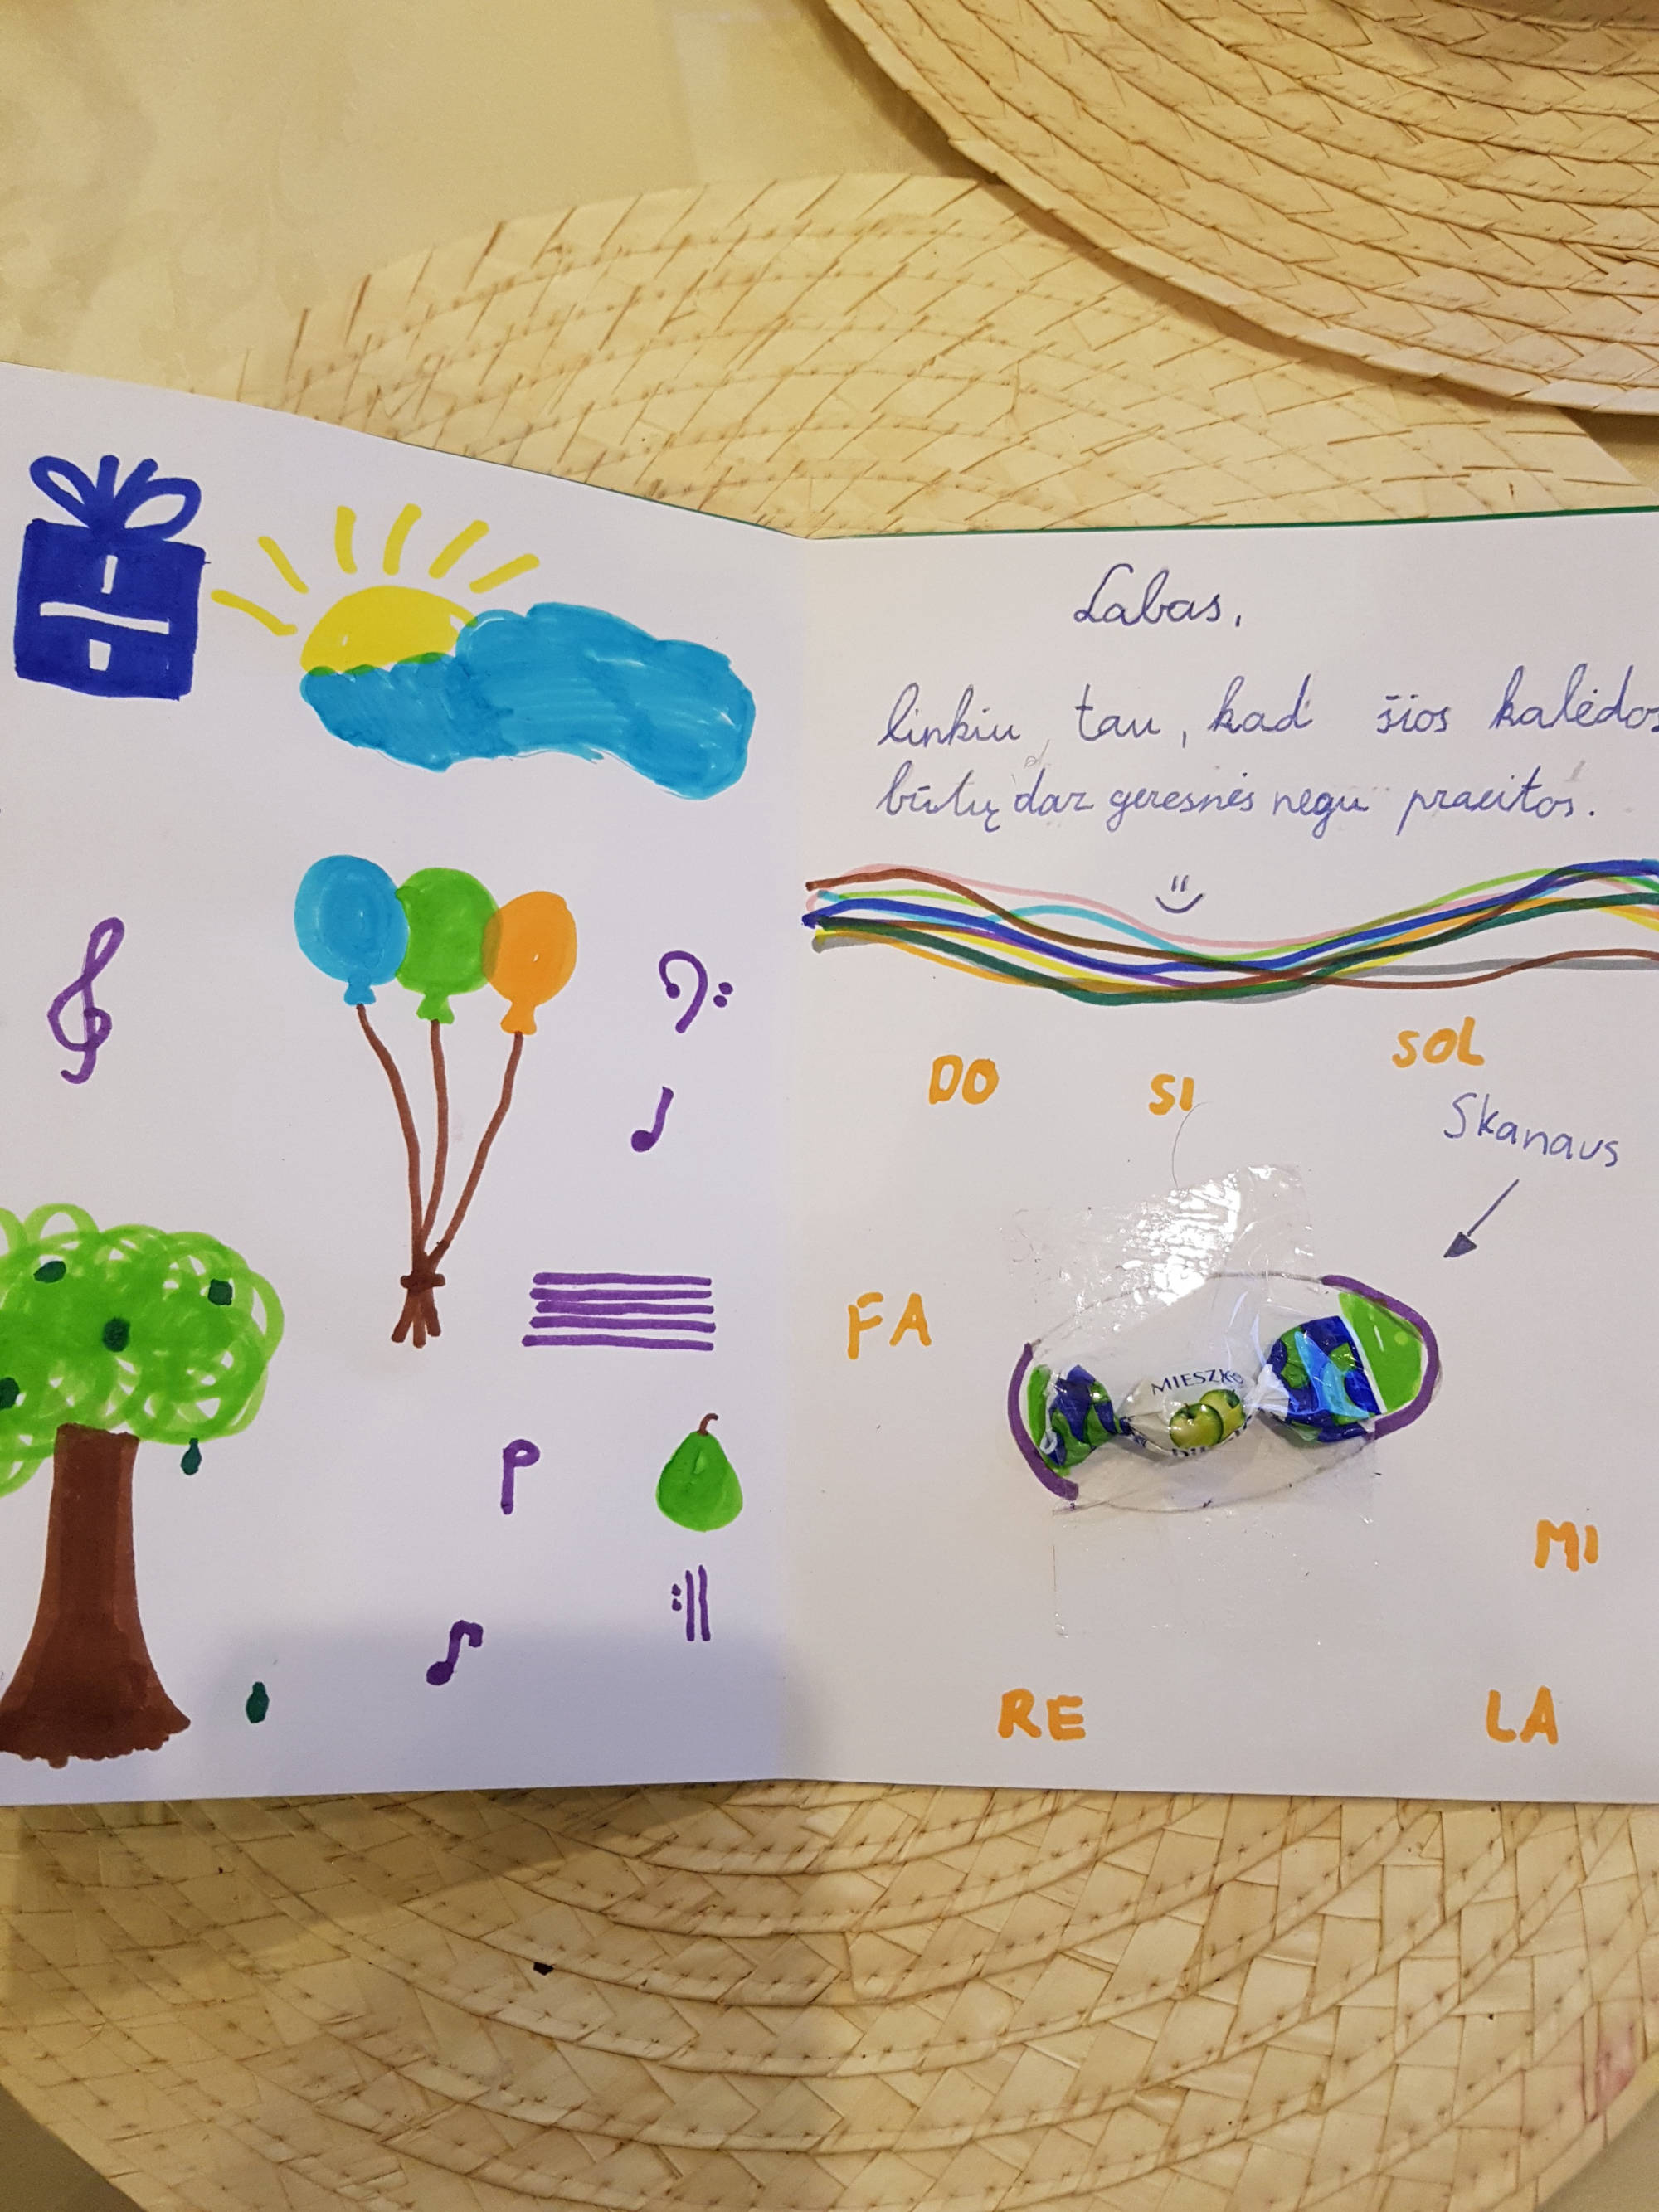 Labas,
linkiu tau, kad šios kalėdos
būtų dar geresnės negu praeitos.
DO
SI
SOL
Skanaus
FA
MIESZKO
MI
RE
LA